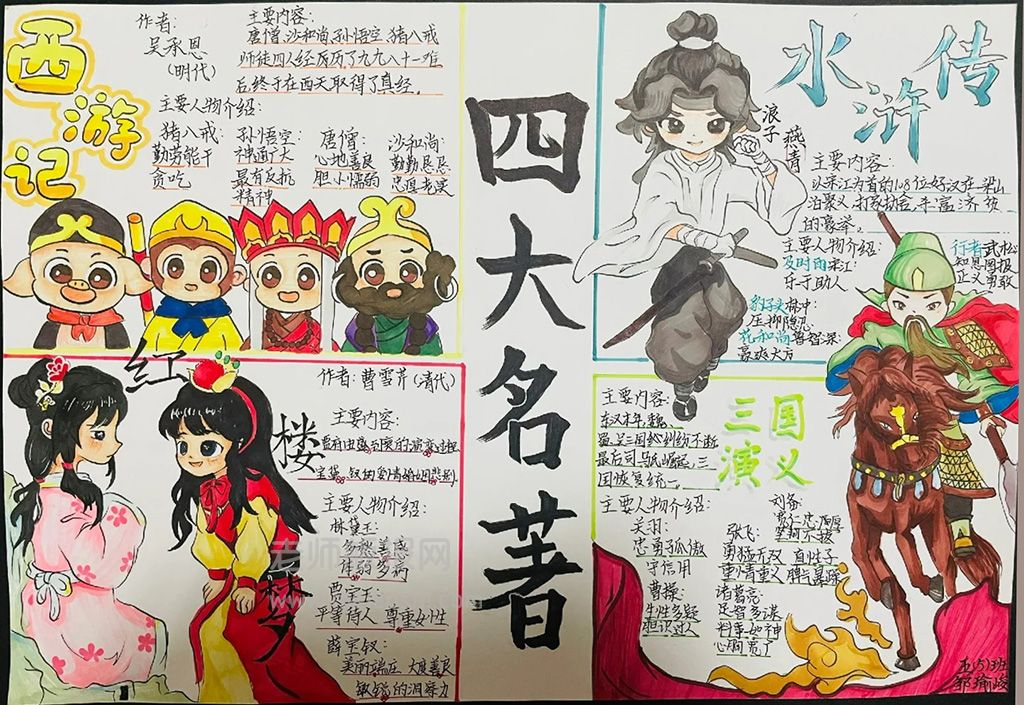 四大名著
西游记
作者：
吴承恩
（明代）
主要内容：
唐僧、沙和尚、孙悟空、猪八戒
师徒四人经历历了九九八十一难
后，终于在西天取得了真经。
主要人物介绍：
猪八戒：
勤劳能干
贪吃
孙悟空：
神通广大
最有反抗
精神
唐僧：
心地善良
胆小懦弱
沙和尚：
勤勤恳恳
忠诚老实
红楼梦
作者：曹雪芹（清代）
主要内容：
主要人物介绍：
林黛玉：
多愁善感
体弱多病
贾宝玉：
平等待人 尊重女性
薛宝钗：
美丽端庄 大度善良
敏锐的洞察力
水浒传
浪子
燕青
主要内容：
以宋江为首的108位好汉在梁山
泊聚义，打家劫舍，手富济贫
的豪举。
主要人物介绍：
及时雨宋江：
乐于助人
豹子头林冲：
花和尚鲁智深：
豪爽大方
行者武松
知恩图报
正义勇敢
三国
演义
主要内容：
东汉末年，魏、
蜀、吴三国纷纷不断
最后司马氏崛起，三
国恢复统一。
主要人物介绍：
关羽：
忠勇孤傲
守信用
曹操：
生性多疑
胆识过人
刘备：
坚韧不拔
张飞：
勇猛无双 直性子
重情重义 脾气暴躁
诸葛亮：
足智多谋
料事如神
心胸宽广
五（5）班